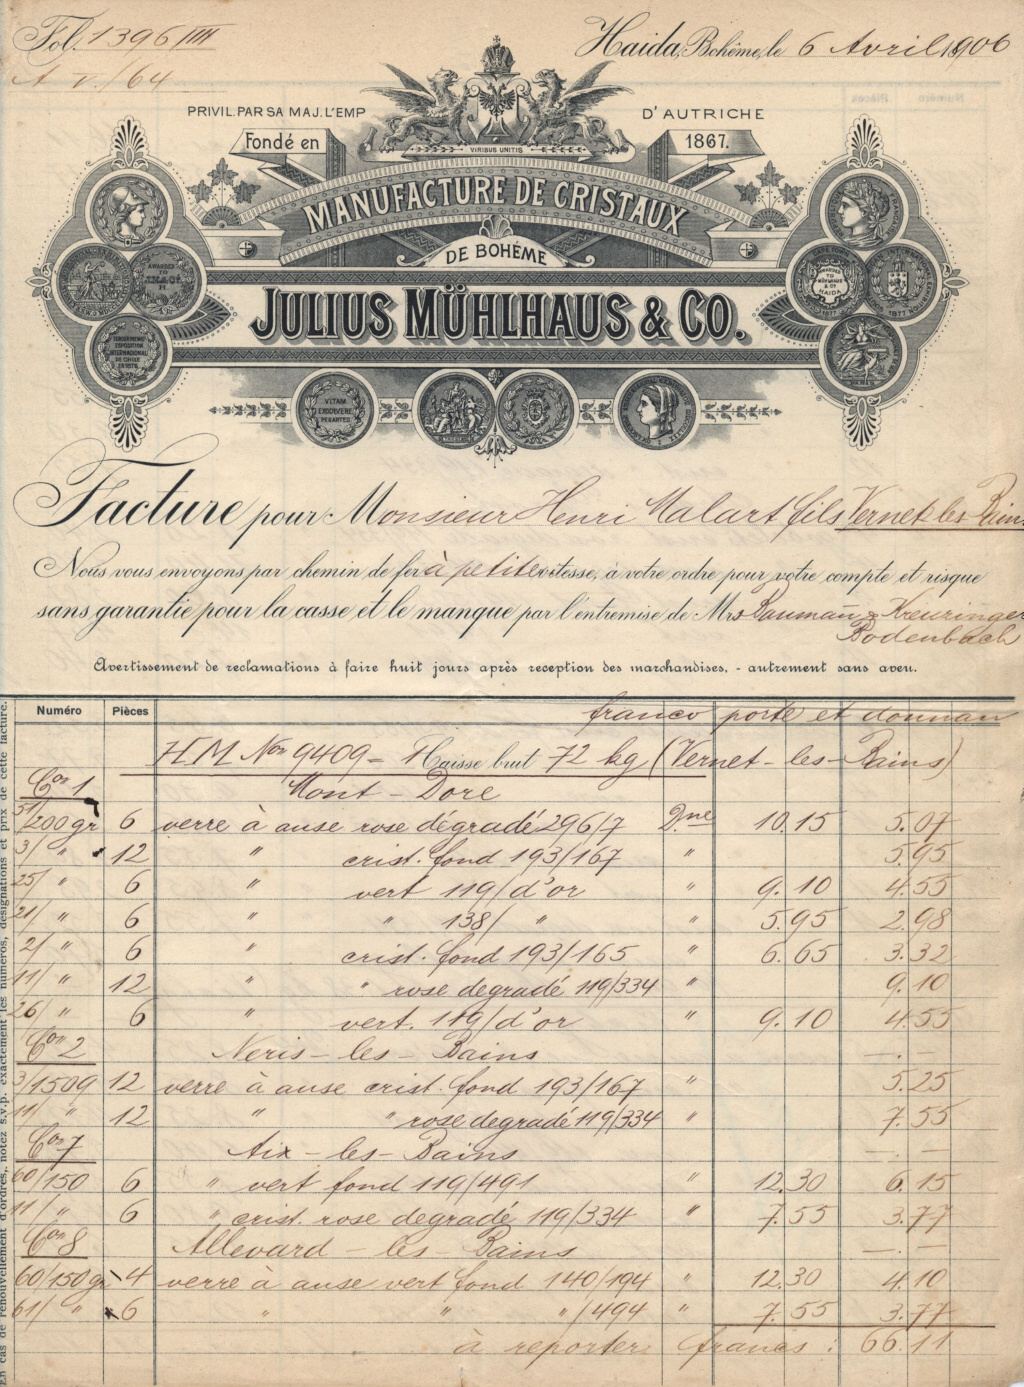 Fol. 1396/III
Haida, Bohême, le 6 Avril 1906
A v./64
PRIVIL. PAR SA MAJ. L'EMP D'AUTRICHE
Fondé en 1867.
VIRIBUS UNITIS
MANUFACTURE DE CRISTAUX
DE BOHÊME
JULIUS MÜHLHAUS & CO.
Facture pour Monsieur Henri Malart fils Vernet les Bains
Nous vous envoyons par chemin de fer à petite vitesse, à votre ordre pour votre compte et risque
sans garantie pour la casse et le manque par l'entremise de Mrs Bauman & Kreuzinger
Bodenbach
Avertissement de reclamations à faire huit jours après reception des marchandises, - autrement sans aveu.
Numéro Pièces franco porte et douane
HM Nor 9409 = Kaisse brut 72 kg (Vernet-les-Bains)
Con 1 Mont-Dore
51/200gr 6 verre à anse rose dégradé 296/7 Dne 10.15 5.07
3/ " 12 " crist. fond 193/167 " 5.95
25/ " 6 " vert 119/d'or " 9.10 4.55
21/ " 6 " " 138/ " " 5.95 2.98
2/ " 6 " crist. fond 193/165 " 6.65 3.32
11/ " 12 " " rose degradé 119/334 " 9.10
26/ " 6 " vert. 119/d'or " 9.10 4.55
Con 2 Neris-les-Bains —.—
3/150g 12 verre à anse crist. fond 193/167 " 5.25
11/ " 12 " " rose degradé 119/334 " 7.55
Con 7 Aix-les-Bains —.—
60/150 6 " vert fond 119/491 " 12.30 6.15
11/ " 6 " crist. rose degradé 119/334 " 7.55 3.77
Con 8 Allevard-les Bains —.—
60/150gr 4 verre à anse vert fond 140/194 " 12.30 4.10
61/ " 6 " " "/494 " 7.55 3.77
à reporter francs : 66.11
En cas de renouvellement d'ordres, notez s.v.p. exactement les numéros, designations et prix de cette facture.